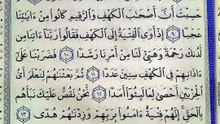 حَسِبْتَ أَنَّ أَصْحَٰبَ ٱلْكَهْفِ وَٱلرَّقِيمِ كَانُوا۟ مِنْ ءَايَٰتِنَا
عَجَبًا ٩ إِذْ أَوَى ٱلْفِتْيَةُ إِلَى ٱلْكَهْفِ فَقَالُوا۟ رَبَّنَآ ءَاتِنَا مِن
لَّدُنكَ رَحْمَةً وَهَيِّئْ لَنَا مِنْ أَمْرِنَا رَشَدًا ١٠ فَضَرَبْنَا عَلَىٰٓ
ءَاذَانِهِمْ فِى ٱلْكَهْفِ سِنِينَ عَدَدًا ١١ ثُمَّ بَعَثْنَٰهُمْ لِنَعْلَمَ أَىُّ
نَّحْنُ نَقُصُّ عَلَيْكَ نَبَأَهُم
بِٱلْحَقِّ إِنَّهُمْ فِتْيَةٌ ءَامَنُوا۟ بِرَبِّهِمْ وَزِدْنَٰهُمْ هُدًى ١٣